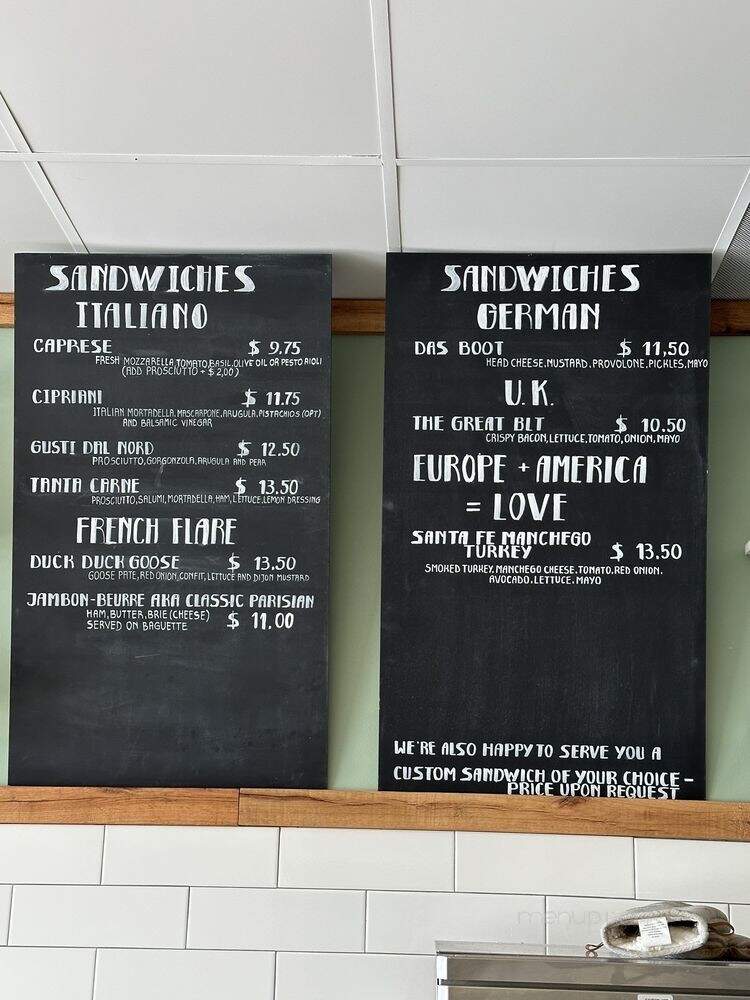 SANDWICHES
ITALIANO
CAPRESE $ 9.75
FRESH MOZZARELLA, TOMATO, BASIL, OLIVE OIL OR PESTO AIOLI
(ADD PROSCIUTTO + $ 2,00)
CIPRIANI $ 11.75
ITALIAN MORTADELLA, MASCARPONE, ARUGULA, PISTACHIOS (OPT)
AND BALSAMIC VINEGAR
GUSTI DAL NORD $ 12.50
PROSCIUTTO, GORGONZOLA, ARUGULA AND PEAR
TANTA CARNE $ 13.50
PROSCIUTTO, SALUMI, MORTADELLA, HAM, LETTUCE, LEMON DRESSING
FRENCH FLARE
DUCK DUCK GOOSE $ 13.50
GOOSE PATE, RED ONION, CONFIT, LETTUCE AND DIJON MUSTARD
JAMBON-BEURRE AKA CLASSIC PARISIAN
HAM, BUTTER, BRIE (CHEESE)
SERVED ON BAGUETTE $ 11.00
SANDWICHES
GERMAN
DAS BOOT $ 11,50
HEAD CHEESE, MUSTARD, PROVOLONE, PICKLES, MAYO
U.K.
THE GREAT BLT $ 10.50
CRISPY BACON, LETTUCE, TOMATO, ONION, MAYO
EUROPE + AMERICA
= LOVE
SANTA FE MANCHEGO
TURKEY $ 13.50
SMOKED TURKEY, MANCHEGO CHEESE, TOMATO, RED ONION,
AVOCADO, LETTUCE, MAYO
WE'RE ALSO HAPPY TO SERVE YOU A
CUSTOM SANDWICH OF YOUR CHOICE -
PRICE UPON REQUEST